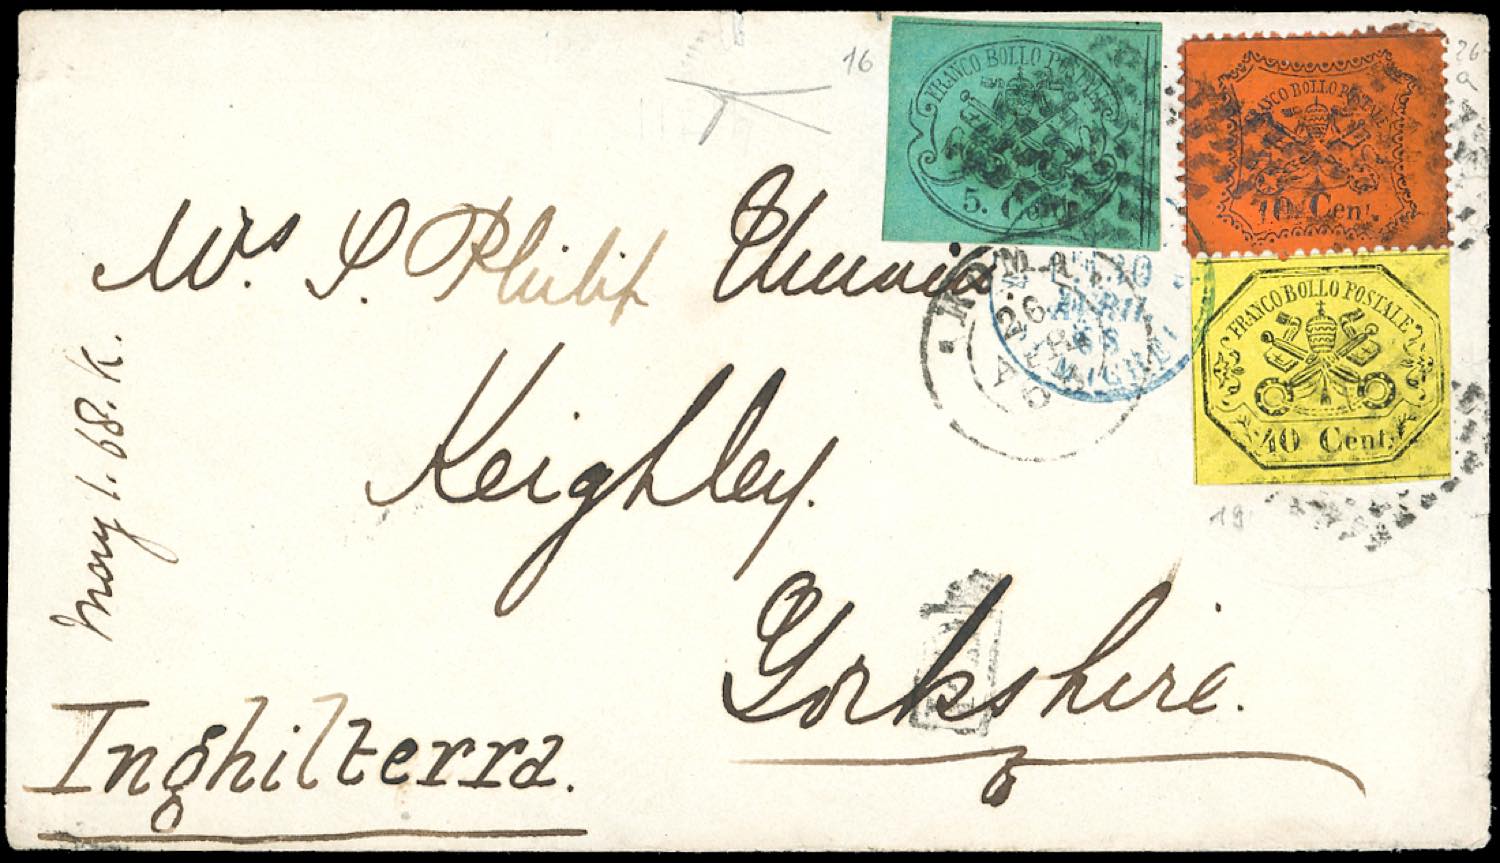 16
26
a
FRANCO BOLLO POSTALE
5. Cent
FRANCO BOLLO POSTALE
10 Cent.
FRANCO BOLLO POSTALE
40 Cent.
Mrs S. Philip
ROMA
26
APR
68
AVRIL
68
Keighley.
May 1. 68. K.
19
Yorkshire.
Inghilterra.